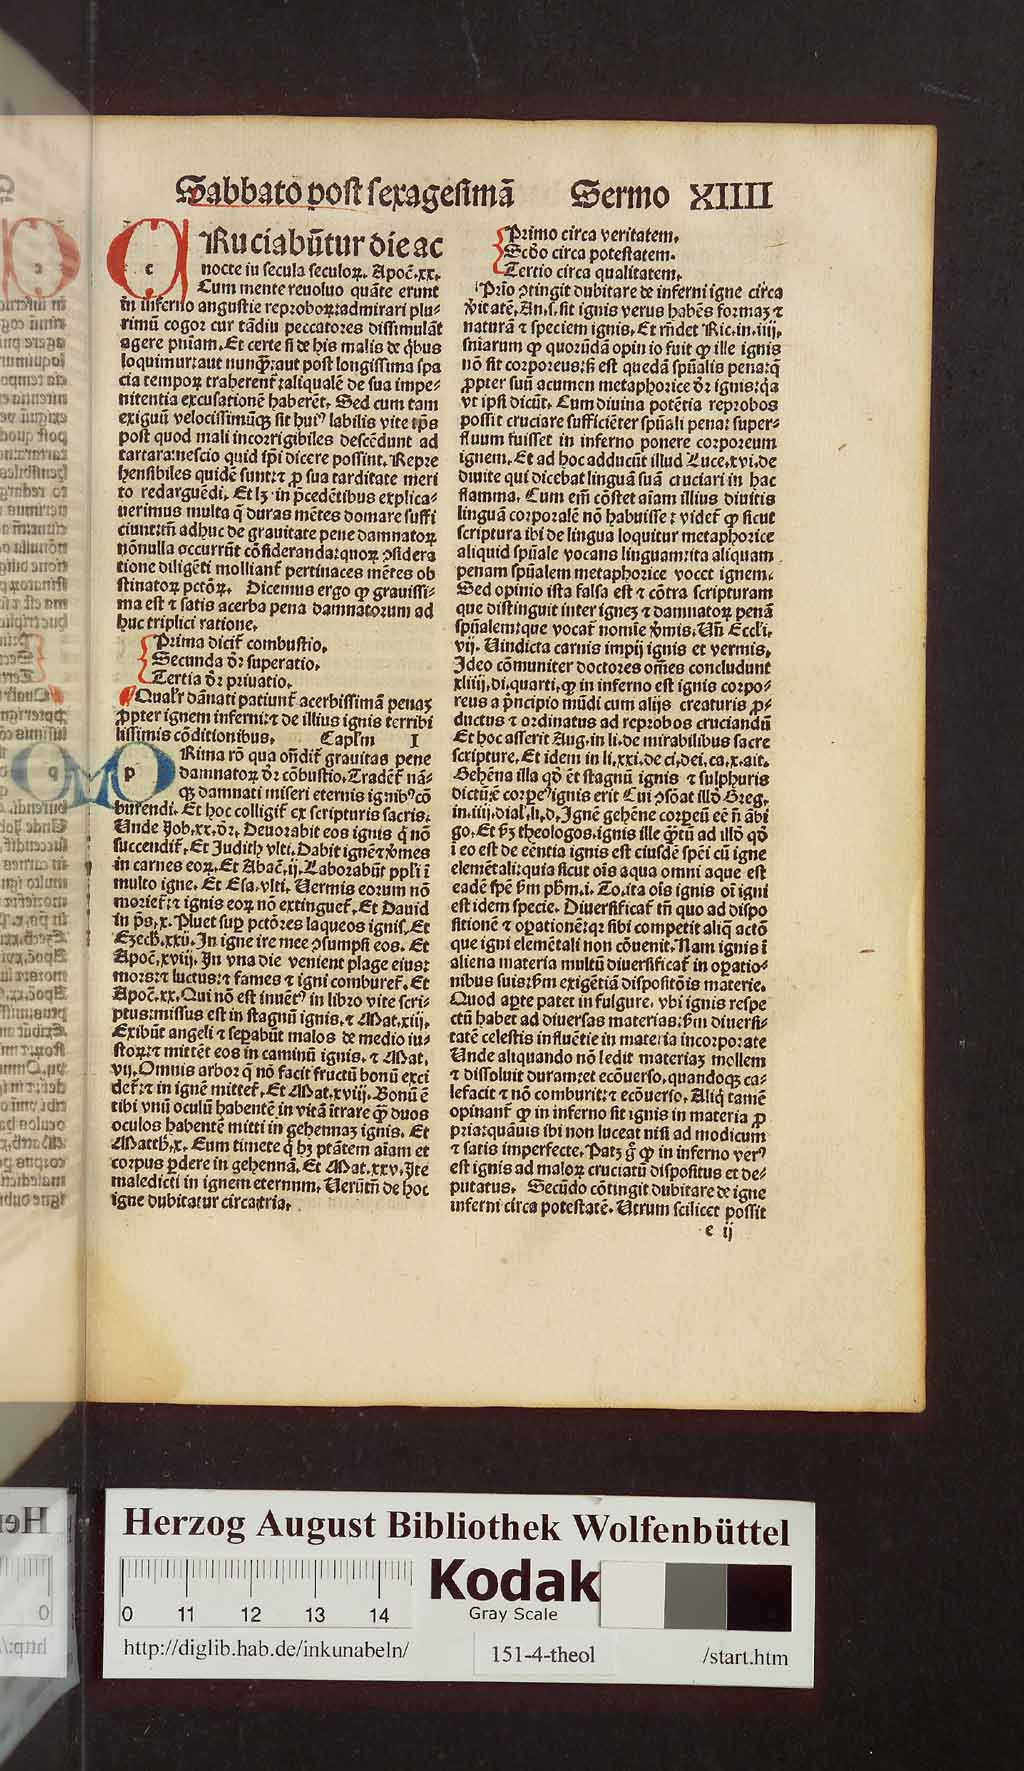 Sabbato post sexagesimā Sermo XIIII
CRuciabūtur die ac
nocte in secula seculoꝝ. Apoc̄.xx.
Cum mente reuoluo quāte erunt
in inferno angustie reproboꝝ:admirari plu-
rimū cogor cur tādiu peccatores dissimulāt
agere pn̄iam. Et certe si de his malis de q̇bus
loquimur:aut nunq̄ꝫ:aut post longissima spa
cia tempoꝝ traherent᷑:aliqualē de sua impe-
nitentia excusationē haberēt. Sed cum tam
exiguū velocissimūqꝫ sit huiꝰ labilis vite tp̄s
post quod mali incorrigibiles descēdunt ad
tartara:nescio quid ip̄i dicere possint. Repre
hensibiles quidē sunt:⁊ ꝓ sua tarditate meri
to redarguēdi. Et lꝫ in p̄cedētibus explica-
uerimus multa q̄ duras mētes domare suffi
ciunt:tn̄ adhuc de grauitate pene damnatoꝝ
nōnulla occurrūt cōsideranda:quoꝝ ꝯsidera
tione diligēti molliant᷑ pertinaces mētes ob
stinatoꝝ pctōꝝ. Dicemus ergo ꝙ grauissi-
ma est ⁊ satis acerba pena damnatorum ad
huc triplici ratione.
Prima dicit᷑ combustio.
Secunda dr̄ superatio.
Tertia dr̄ priuatio.
Qualr̄ dānati patiunt᷑ acerbissimā penaꝫ
ꝓpter ignem inferni:⁊ de illius ignis terribi
lissimis cōditionibus. Capl̄m I
PRima rō qua on̄dit᷑ grauitas pene
damnatoꝝ dr̄ cōbustio. Tradēt᷑ nā-
qꝫ damnati miseri eternis ignibꝰ cō
burendi. Et hoc colligit᷑ ex scripturis sacris.
Unde Job.xx.dr̄. Deuorabit eos ignis q̇ nō
succendit᷑. Et Judith vlti. Dabit ignē ⁊ v̓mes
in carnes eoꝝ. Et Abac̄.ij. Laborabūt ppl̄i ī
multo igne. Et Esa. vlti. Uermis eorum nō
moriet᷑:⁊ ignis eoꝝ nō extinguet᷑. Et Dauid
in ps̄.x. Pluet suꝑ pctōres laqueos ignis. Et
Ezech̄.xxij. In igne ire mee ꝯsumpsi eos. Et
Apoc̄.xviij. In vna die venient plage eius:
mors:⁊ luctus:⁊ fames ⁊ igni comburet᷑. Et
Apoc̄.xx. Qui nō est inuētꝰ in libro vite scri-
ptus:missus est in stagnū ignis. ⁊ Mat.xiij.
Exibūt angeli ⁊ seꝑabūt malos de medio iu-
stoꝝ:⁊ mittēt eos in caminū ignis. ⁊ Mat.
vij. Omnis arbor q̄ nō facit fructū bonū exci
det᷑:⁊ in ignē mittet᷑. Et Mat.xviij. Bonū ē
tibi vnū oculū habentē in vitā ītrare q̄ꝫ duos
oculos habentē mitti in gehennaꝫ ignis. Et
Matth̄.x. Eum timete q̇ hꝫ ptātem aīam et
corpus ꝑdere in gehennā. Et Mat.xxv. Ite
maledicti in ignem eternnm. Uerūtn̄ de hoc
igne dubitatur circa tria.
Primo circa veritatem.
Scd̄o circa potestatem.
Tertio circa qualitatem.
Prīo ꝯtingit dubitare de inferni igne circa
v̓itatē. An.s.sit ignis verus habēs formaꝫ ⁊
naturā ⁊ speciem ignis. Et rn̄det Ric.in.iiij.
sniarum ꝙ quorūdā opinio fuit ꝙ ille ignis
nō sit corporeus:s̄ est quedā spūalis pena:q̄
ꝓpter suū acumen metaphorice dr̄ ignis:q̇a
vt ipsi dicūt. Cum diuina potētia reprobos
possit cruciare sufficiēter spūali pena: super-
fluum fuisset in inferno ponere corporeum
ignem. Et ad hoc adducūt illud Luce.xvi.de
diuite qui dicebat linguā suā cruciari in hac
flamma. Cum em̄ cōstet aīam illius diuitis
linguā corporalē nō habuisse: videt᷑ ꝙ sicut
scriptura ibi de lingua loquitur metaphorice
aliquid spūale vocans linguam:ita aliquam
penam spūalem metaphorice vocet ignem.
Sed opinio ista falsa est ⁊ cōtra scripturam
que distinguit inter igneꝫ ⁊ damnatoꝝ penā
spūalem:que vocat᷑ nomīe v̓mis. Un̄ Eccl̄i.
vij. Uindicta carnis impij ignis et vermis.
Ideo cōmuniter doctores om̄es concludunt
xliiij.di.quarti. ꝙ in inferno est ignis corpo-
reus a p̄ncipio mūdi cum alijs creaturis ꝓ-
ductus ⁊ ordinatus ad reprobos cruciandū
Et hoc asserit Aug.in li.de mirabilibus sacre
scripture. Et idem in li.xxi.de ci.dei.ca.x.ait.
Gehēna illa qd̄ ēt stagnū ignis ⁊ sulphuris
dictū:ē corꝑeꝰ ignis erit Cui ꝯsōat illd̄ Greg.
in.iiij.dial̓.li.d. Ignē gehēne corpeū eē n̄ ābi
go. Et ẜꝫ theologos.ignis ille q̄ꝫtū ad illd̄ qd̄
ī eo est de eēntia ignis est eiusdē spēi cū igne
elemētali:quia sicut oīs aqua omni aque est
eadē spē ẜm pħm.i. To.ita oīs ignis oī igni
est idem specie. Diuersificat᷑ tn̄ quo ad dispo
sitionē ⁊ oꝑationē:qꝛ sibi competit aliq̄ actō
que igni elemētali non cōuenit. Nam ignis ī
aliena materia multū diuersificat᷑ in oꝑatio-
nibus suis:ẜm exigētiā dispositōis materie.
Quod aꝑte patet in fulgure. vbi ignis respe
ctū habet ad diuersas materias:ẜm diuersi-
tatē celestis influētie in materia incorporate
Unde aliquando nō ledit materiaꝫ mollem
⁊ dissoluit duram:et ecōuerso.quandoqꝫ ca-
lefacit ⁊ nō comburit:⁊ ecōuerso. Aliq̇ tamē
opinant᷑ ꝙ in inferno sit ignis in materia ꝓ
pria:quāuis ibi non luceat nisi ad modicum
⁊ satis imperfecte. Patꝫ g̊ ꝙ in inferno verꝰ
est ignis ad maloꝝ cruciatū dispositus et de-
putatus. Secūdo cōtingit dubitare de igne
inferni circa potestatē. Utrum scilicet possit
e ij
Herzog August Bibliothek Wolfenbüttel
Kodak
Gray Scale
0 11 12 13 14
http://diglib.hab.de/inkunabeln/ 151-4-theol /start.htm